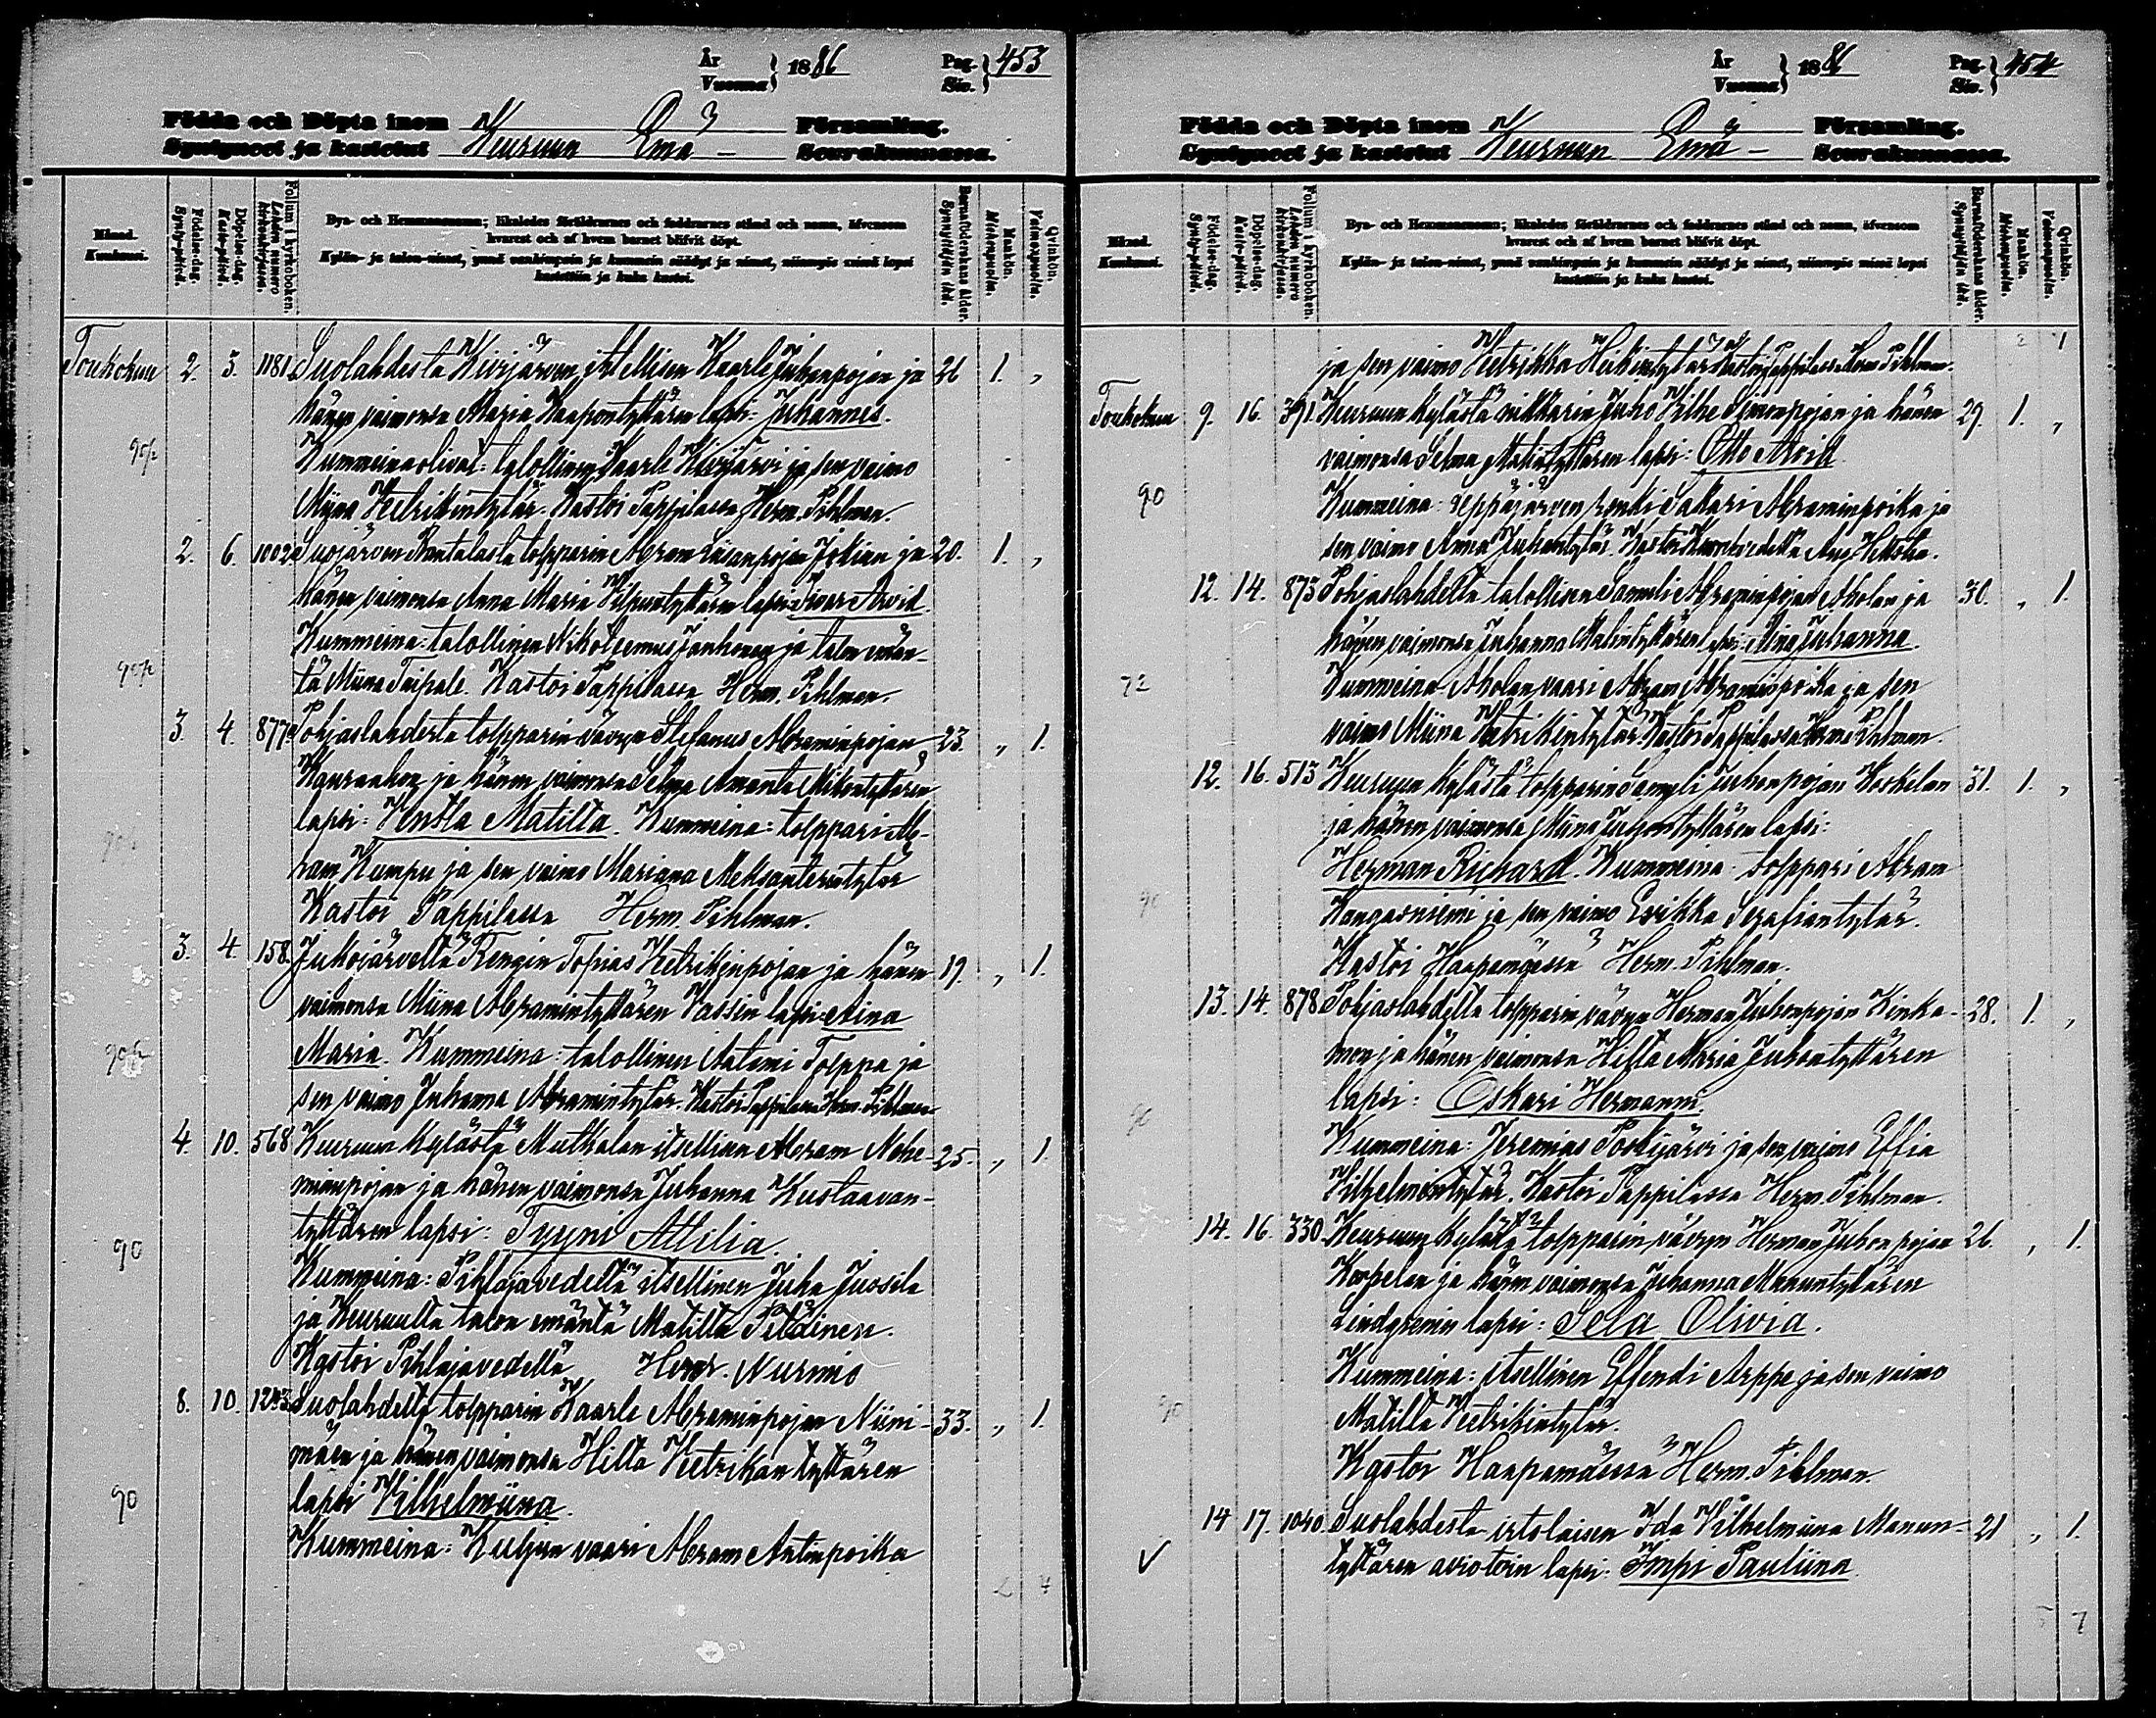 År
Vuonna } 1886 Pag.
Siv. } 453
Födda och Döpta inom
Syntyneet ja kastetut Keuruun Emä- Församling.
Seurakunnassa.
Månad.
Kuukausi.
Födelse-dag.
Synty-päivä.
Döpelse-dag.
Kaste-päivä.
Folium i kyrkoboken.
Lehden numero kirkonkirjassa.
Bya- och Hemmansnamn; likaledes föräldrarnes och faddrarnes stånd och namn, äfvensom
hvarest och af hvem barnet blifvit döpt.
Kylän- ja talon-nimet, ynnä vanhimpain ja kummein säädyt ja nimet, niinmyös missä lapsi
kastettiin ja kuka kastoi.
Barnaföderskans ålder.
Synnyttäjän ikä.
Mankön.
Miehenpuolia.
Qvinkön.
Vaimonpuolia.
Toukokuu 2. 3. 1181. Suolahdesta Kivijärven itsellisen Kaarle Juhonpojan ja 26 1. „
hänen vaimonsa Maria Kaapontyttären lapsi: Juhannes.
Kummeina olivat: talollinen Kaarle Kivijärvi ja sen vaimo
Miina Heikintytär. Kastoi Pappilassa Herm. Pihlman.
2. 6. 1002 Suojärven Rantalasta tolpparin Abram Iisanpojan Jokisen ja 20. 1. „
hänen vaimonsa Anna Maria Vilpuntyttären lapsi: Ivar Arvid.
Kummeina: talollinen Nikotemus Janhonen ja talon emän-
tä Miina Taipale. Kastoi Pappilassa Herm. Pihlman.
3. 4. 877 Pohjaslahdesta tolpparin vävyn Stefanus Abraminpojan 23. „ 1.
ja hänen vaimonsa Selma Amanta Mikontyttären
lapsi: Matilta. Kummeina: tolppari Ab-
ram Kumpu ja sen vaimo Mariana Aleksanterintytär
Kastoi Pappilassa Herm. Pihlman.
3. 4. 158. Jukojärveltä Rengin Tofias Hetrikinpojan ja hänen 19. „ 1.
vaimonsa Miina Abramintyttären Vassin lapsi: Aina
Maria. Kummeina: talollinen Aatami Tolppa ja
sen vaimo Juhanna Abramintytär. Kastoi Pappilassa Herm. Pihlman.
4. 10. 568 Keuruun Kylästä Mutkalan itsellisen Abram Nehe- 25. „ 1.
mianpojan ja hänen vaimonsa Juhanna Kustaavan-
tyttären lapsi: Tyyni Atilia.
90
Kummeina: Pihlajavedeltä itsellinen Juha Jussila
ja Keuruulta talon emäntä Matilta Pitäinen.
Kastoi Pihlajavedellä Nurmio
8. 10. Suolahdelta tolpparin Kaarle Abraminpojan Niini- 33. „ 1.
mäen ja hänen vaimonsa Hilta Veetrikan tyttären
90
lapsi Vilhelmiina.
Kummeina: vaari Abram Antinpoika
2 4
År
Vuonna } 1886 Pag.
Siv. } 454
Födda och Döpta inom
Syntyneet ja kastetut Keuruun Emä- Församling.
Seurakunnassa.
Månad.
Kuukausi.
Födelse-dag.
Synty-päivä.
Döpelse-dag.
Kaste-päivä.
Folium i kyrkoboken.
Lehden numero kirkonkirjassa.
Bya- och Hemmansnamn; likaledes föräldrarnes och faddrarnes stånd och namn, äfvensom
hvarest och af hvem barnet blifvit döpt.
Kylän- ja talon-nimet, ynnä vanhimpain ja kummein säädyt ja nimet, niinmyös missä lapsi
kastettiin ja kuka kastoi.
Barnaföderskans ålder.
Synnyttäjän ikä.
Mankön.
Miehenpuolia.
Qvinkön.
Vaimonpuolia.
ja sen vaimo Hetrikka Heikintytär. Kastoi Pappilassa Herm. Pihlman.
Toukokuu 9. 16. 391. Keuruun Kylästä nikkarin Juho Vilhe Simonpojan ja hänen 29. 1. „
vaimonsa Selma Matintyttären lapsi: Otto Arvid
90
Kummeina: renki Sakari Abraminpoika ja
sen vaimo Anna Juhontytär. Kastoi Aug.
12. 14. 873 Pohjaslahdelta talollisen Sameli Abraminpojan Aholan ja 30. „ 1.
hänen vaimonsa Juhanna Matintyttären lapsi: Miina Juhanna.
72
Kummeina Aholan vaari Abram Abraminpoika ja sen
vaimo Miina Hetrikintytär. Kastoi Pappilassa Herm. Pihlman.
12. 16. 513 Keuruun Kylästä tolpparin Sameli Juhonpojan Koskelan 31. 1. „
ja hänen vaimonsa Miina Juhontyttären lapsi:
Herman Richard. Kummeina: tolppari Abram
90
Kangasniemi ja sen vaimo Eerikka Serafiantytär.
Kastoi Haapamäessä Herm. Pihlman.
13. 14. 878 Pohjaslahdelta tolpparin vävyn Herman Juhonpojan Kinka- 28. 1. „
mon ja hänen vaimonsa Hilta Maria Juhontyttären
lapsi: Oskari Hermanni.
Kummeina: Jeremias Poskijärvi ja sen vaimo Effia
Vilhelmintytär. Kastoi Pappilassa Herm. Pihlman.
14. 16. 330. Keuruun Kylästä tolpparin vävyn Herman Juhonpojan 26. „ 1.
Korpelan ja hänen vaimonsa Juhanna Manuntyttären
Lindgrenin lapsi: Sela Olivia.
Kummeina: itsellinen Effendi Arppe ja sen vaimo
90
Matilta Veetrikintytär.
Kastoi Haapamäessä Herm. Pihlman.
14 17. 1040 Suolahdesta irtolaisen Ida Vilhelmiina Manun- 21 „ 1.
tyttären aviotoin lapsi: Impi Pauliina.
5 7